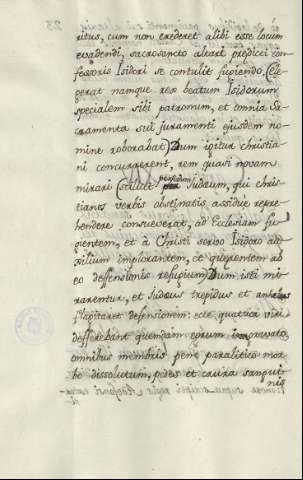 ritus, cum non crederet alibi esse locum
evadendi, sacrosancto altari predicti con-
fessoris Isidori se contulit fugiendo. Ele-
gerat namque rex beatum Isidorum
specialem sibi patronum, et omnia Sa-
cramenta sui juramenti ejusdem no-
mine roborabat. Dum igitur christia-
ni concurrerent, rem quasi novam
mirari scilicet perfidum Judaeum, qui chris-
tianos verbis obstinatis assidue repre-
hendere consueverat, ad Ecclesiam fu-
gientem, et à Christi servo Isidoro au-
xilium implorantem, et quaerentem ab
eo deffensionis refugium. Dum isti mi-
rarentur, et Judaeus trepidus et anhelus
flagitaret defensionem: ecce quatuor viri
defferebant quemdam eorum
omnibus membris penè paralitico mor-
bo dissolutum, pedes et crura sangui
nis